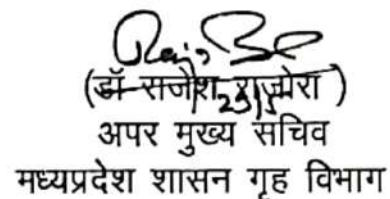 (डॉ राजेश राजोरा )
23/5
अपर मुख्य सचिव
मध्यप्रदेश शासन गृह विभाग